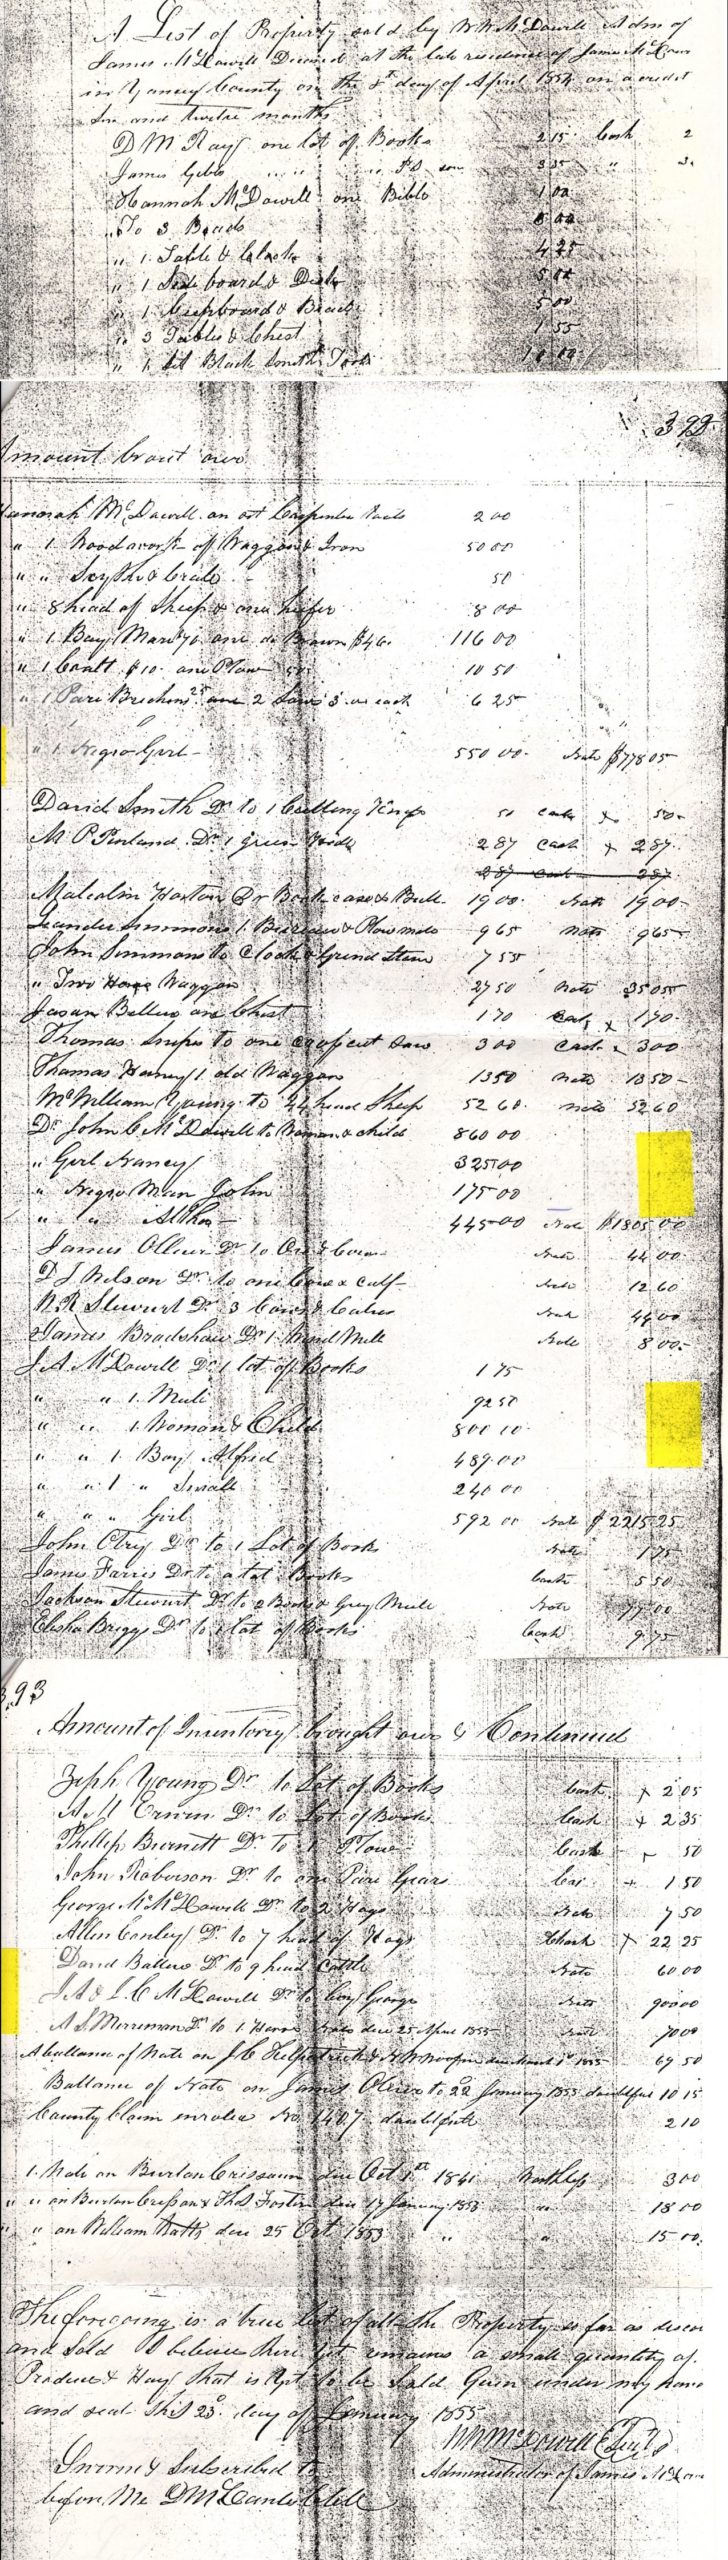 A List of Property sold by W W McDowell Adm of
James McDowell Deceased at the late residence of James McDow
in Yancey County on the 5th day of April 1854 on a credit
Six and twelve months
D M Ray one lot of Books 2 15 Cash 2
James Gibbs " " " 3 35 " 3
Hannah McDowell one Bible 1 00
To 3 Beads 8 00
" 1 Table & Clock 4 25
" 1 Side board & Desk 5 00
" 1 Cupboard & 5 00
" 3 Tables & Chest 1 55
" 1 Set Black Smith Tools
392
Amount brout over
Hannah McDowell Carpenter Tools 2 00
" 1 Wood work off Waggon & Iron 50 00
" " Sythe & Cradle 50
" 8 head of Sheep & one heifer 8 00
" 1 Bay Mare 70 one do Brown $46 116 00
" 1 Coalt $10 one Plow 50 10 50
" 1 Pare Brichens 25 and 2 3 00 each 6 25
" 1 Negro Girl 550 00 Note $778 05
David Smith Dr to 1 Cutting Knife 50 Cash x 50
M P Penland Dr 1 2 87 Cash x 2 87
2 87 Cash 2 87
Malcolm Haston Dr Book case & Bull 19 00 Note 19 00
Leander Simmons 1 Bureau & Plow 9 65 Note 9 65
John Simmons to Clock & Grind Stone 7 55
" Two Horse Waggon 27 50 Note 35 05
Jason Ballew one Chest 1 70 Cash x 1 70
Thomas to one crosscut Saw 3 00 Cash x 3 00
Thomas 1 old Waggon 13 50 Note 13 50
McWilliam Young to 24 head Sheep 52 60 Note 52 60
Dr John C McDowell to Woman & child 860 00
" Girl Nancy 325 00
" Negro Man John 175 00
" " 445 00 Note $1805 00
James Dr to Ox & Cow Note 44 00
D J Wilson Dr to one Cow & calf Note 12 60
N R Stewart Dr 3 Cows & Calves Note 44 00
James Bradshaw Dr 1 Hand Mill Note 8 00
J A McDowell Dr 1 lot of Books 1 75
" " 1 Mule 92 50
" " 1 Woman & Child 800 10
" " 1 Boy Alfred 489 00
" " 1 " Small 240 00
" " " Girl 592 00 Note $2215 25
John Dr to 1 Lot of Books Note 1 75
James Farris Dr to a Lot Books Cash 5 50
Jackson Stewart Dr to 2 Books & Grey Mule Note 77 00
Elisha Briggs Dr to 1 Lot of Books Cash 9 75
393
Amount of Inventory brought over & Continued
Zeph Young Dr to Lot of Books Cash x 2 05
A M Erwin Dr to Lot of Books Cash x 2 35
Phillip Burnett Dr To 1 Plow Cash 50
John Roberson Dr to one Pair Gears Cas + 1 50
George M McDowell Dr to 2 Hogs Note 7 50
Allen Conley Dr to 7 head of Hogs x 22 25
David Ballew Dr to 9 head Cattle Note 60 00
J A & J C McDowell Dr to boy George Note 900 00
A S Merriman Dr to 1 Horse Note due 25 April 1855 Note 70 00
A ballance of Note on J C & due March 1st 1855 69 50
Ballance of Note on James to 22 January 1853 doubtful 10 15
County Claim No 1407 doubtful 2 10
1 Note on Burton due Oct 1st 1841 Worthless 3 00
" " on Burton & Thos Foster due 17 January 1853 " 18 00
" " on William due 25 Oct 1853 " " 15 00
The foregoing is a true list of all the Property as far as
and Sold I believe there yet remains a small quantity of
Produce & Hay that is yet to be Sold Given under my hand
and seal this 23d day of January 1855
W W McDowell
Administrator of James McDow
Sworn & Subscribed to
before Me D M